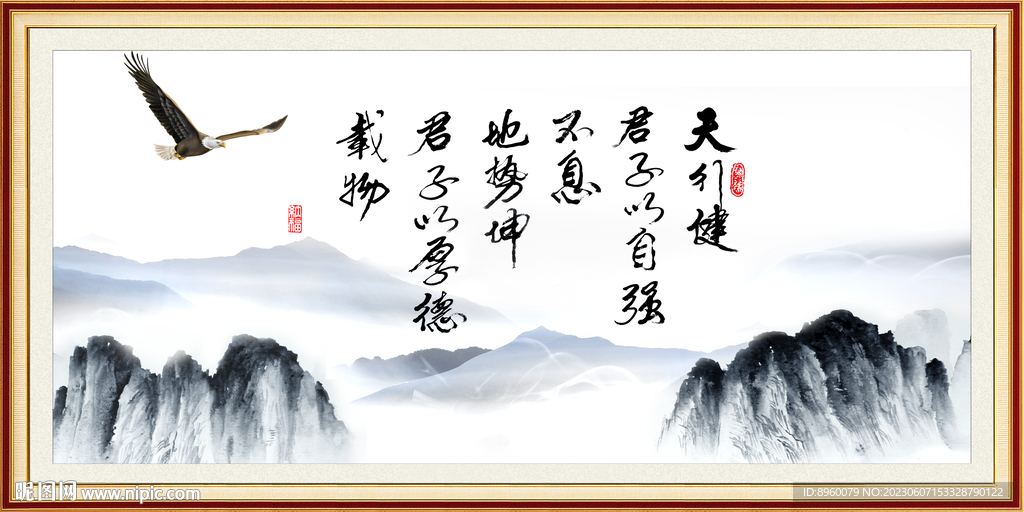 天行健
君子以自强
不息
地势坤
君子以厚德
载物
昵图网 www.nipic.com
ID:8960079 NO:20230607153328790122